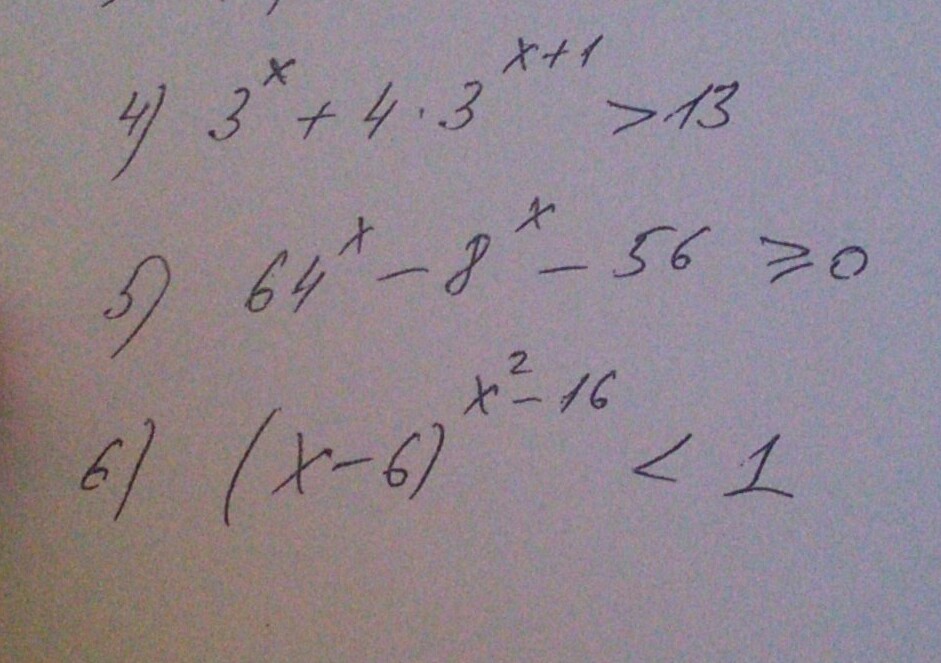 4) 3^x + 4 · 3^{x+1} > 13
5) 64^x − 8^x − 56 ⩾ 0
6) (x−6)^{x²−16} < 1